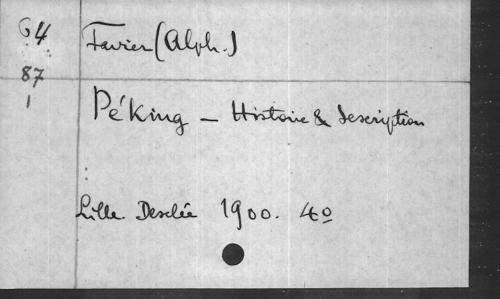 64
87
1
Favier (Alph.)
Péking — Histoire & description
Lille. Desclée 1900. 4o